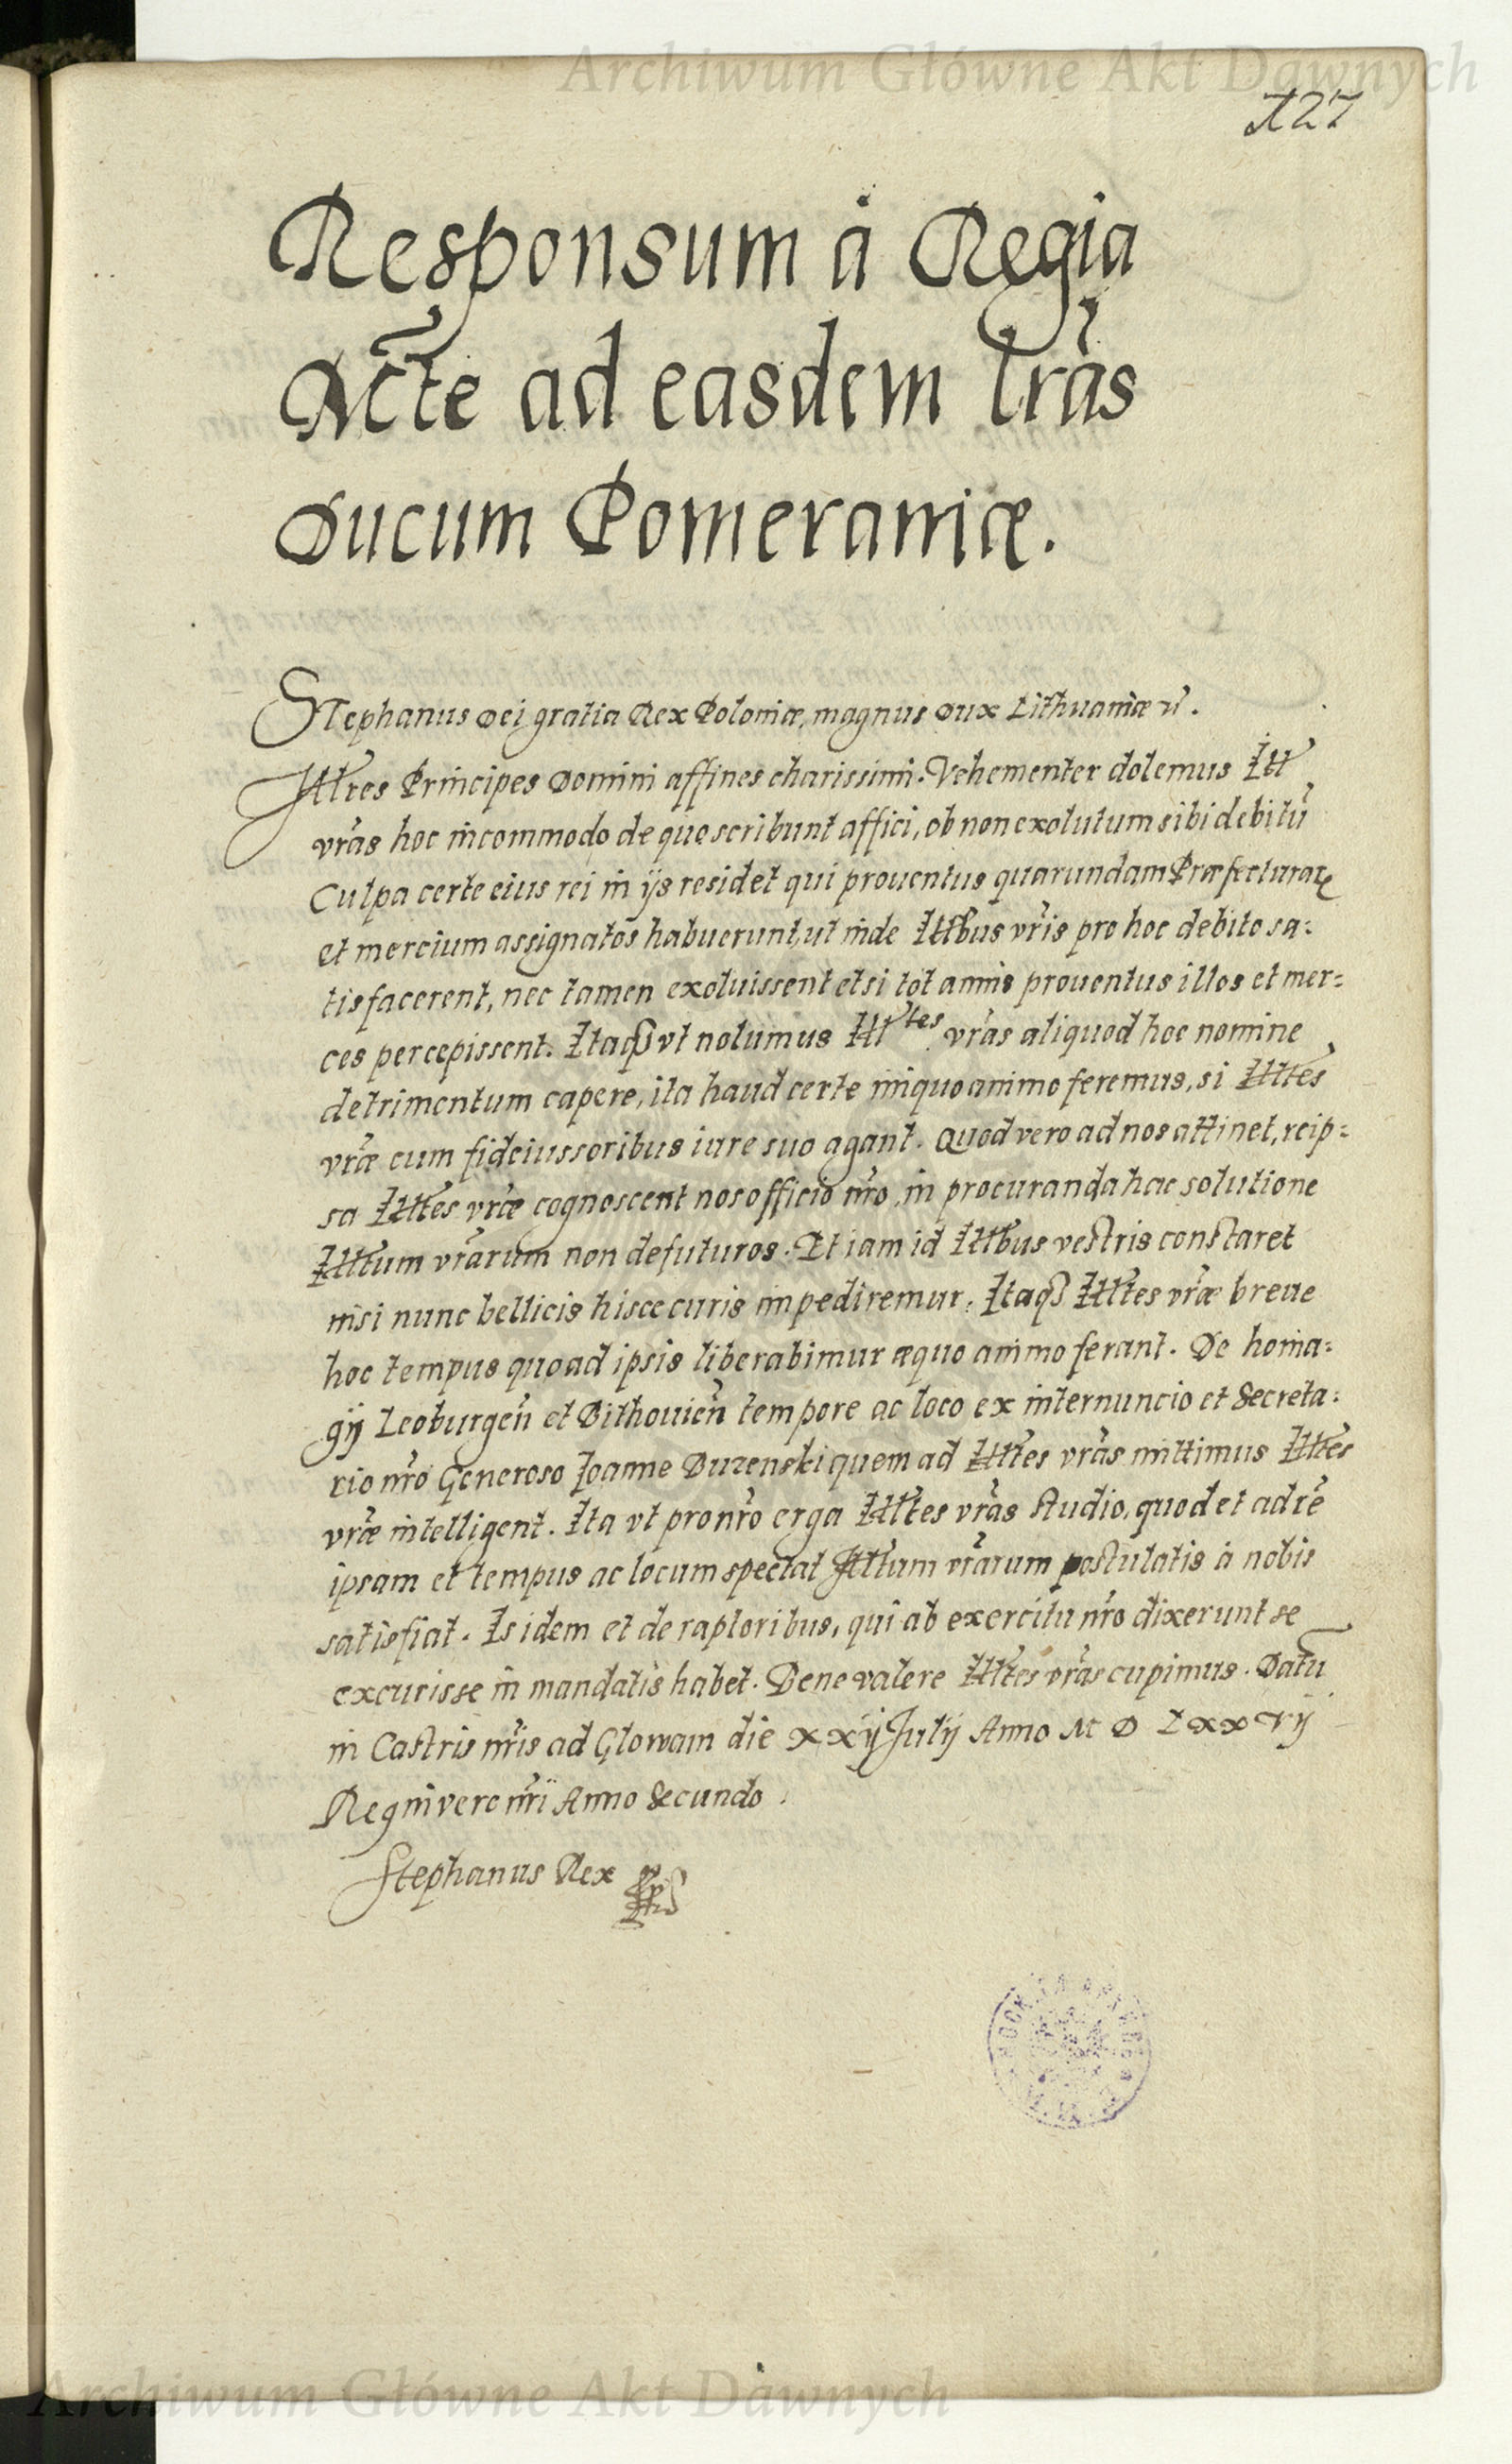 Archiwum Główne Akt Dawnych
127
Responsum à Regia
Mcte ad easdem lras
Ducum Pomeraniæ.
Stephanus Dei gratia Rex Poloniæ, magnus Dux Lithuaniæ
Illres Principes Domini affines charissimi. Vehementer dolemus Ill
vras hoc incommodo de quo scribunt affici, ob non exolutum sibi debitū
Culpa certe eius rei in ijs residet qui prouentus quarundam Præfecturarū
et mercium assignatos habuerunt, ut inde Illbus vris pro hoc debito sa:
tisfacerent, nec tamen exoluissent etsi tot annis prouentus illos et mer:
ces percepissent. Itaq vt nolumus Illtes vras aliquod hoc nomine
detrimentum capere, ita haud certe iniquo animo feremus, si Illtes
vræ cum fideiussoribus iure suo agant. Quod vero ad nos attinet, reip:
sa Illtes vræ cognoscent nos officio nro in procuranda hac solutione
Illtum vrarum non defuturos. Et iam id Illbus vestris constaret
nisi nunc bellicis hisce curis impediremur. Itaq Illtes vræ breue
hoc tempus quoad ipsis liberabimur æquo animo ferant. De homa:
gij Leoburgen et Bithouien tempore ac loco ex internuncio et Secreta:
rio nro Generoso Joanne Duzenski quem ad Illtes vras mittimus Illtes
vræ intelligent. Ita vt pro nro erga Illtes vras studio, quod et ad rē
ipsam et tempus ac locum spectat Illtum vrarum postulatis à nobis
satisfiat. Is idem et de raptoribus, qui ab exercitu nro dixerunt se
excurisse in mandatis habet. Bene valere Illtes vras cupimus. Datū
in Castris nris ad Glowam die xxij Julij Anno M D LXXVij
Regni vero nri Anno Secundo.
Stephanus Rex
Archiwum Główne Akt Dawnych